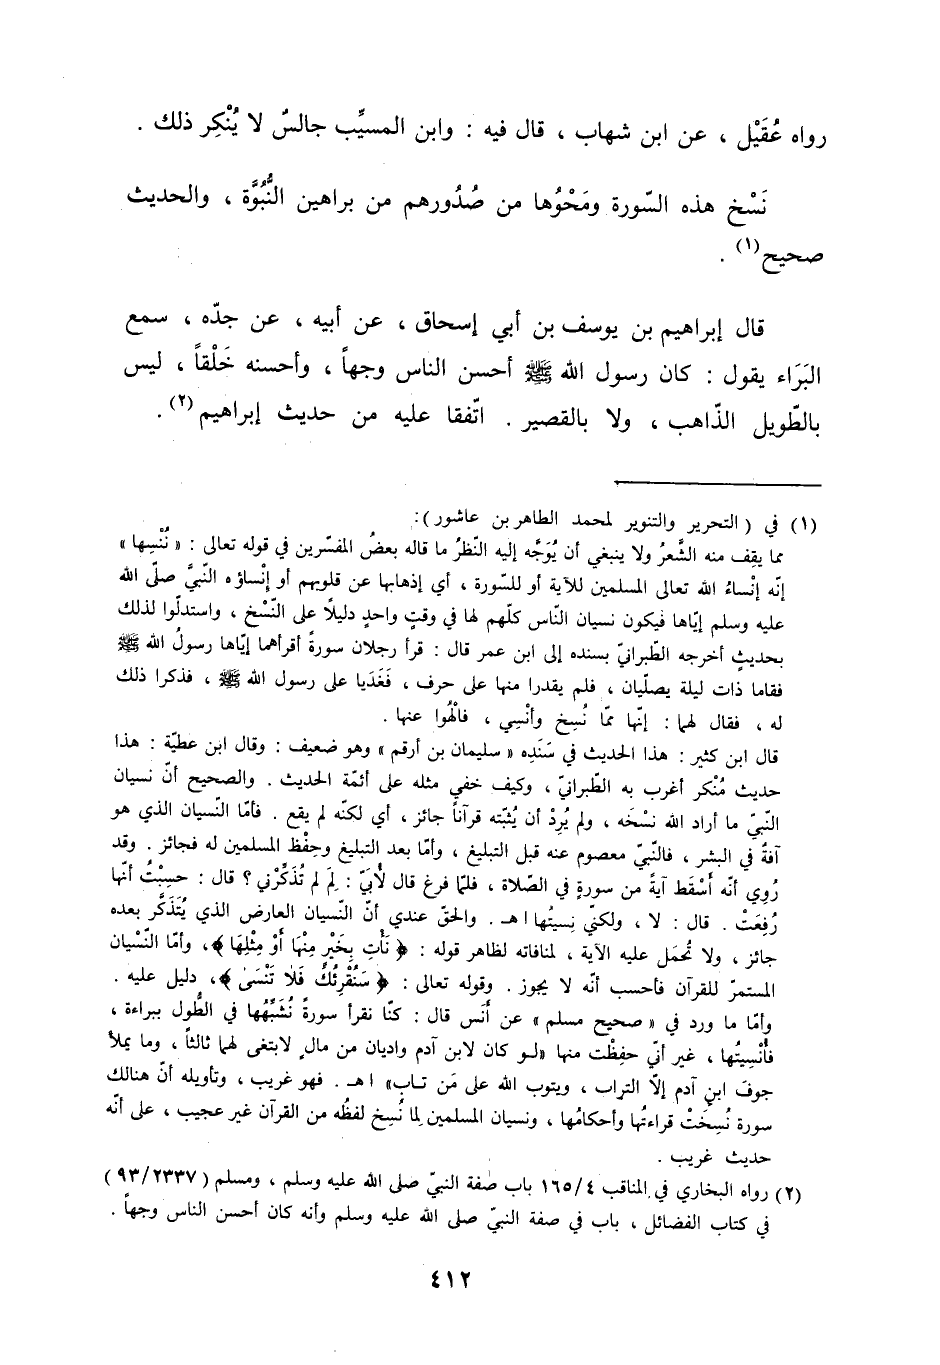 رواه عُقَيْل ، عن ابن شهاب ، قال فيه : وابن المسيِّب جالسٌ لا يُنْكِر ذلك .
نَسْخ هذه السّورة ومَحْوُها من صُدُورهم من براهين النُّبُوَّة ، والحديث
صحيح(١) .
قال إبراهيم بن يوسف بن أبي إسحاق ، عن أبيه ، عن جدّه ، سمع
البَرَاء يقول : كان رسول الله ﷺ أحسن الناس وجهاً ، وأحسنه خَلْقاً ، ليس
بالطّويل الذّاهب ، ولا بالقصير . اتّفقا عليه من حديث إبراهيم(٢) .
(١) في ( التحرير والتنوير لمحمد الطاهر بن عاشور ) :
مما يقف منه الشَّعرُ ولا ينبغي أن يُوَجَّه إليه النّظرُ ما قاله بعضُ المفسّرين في قوله تعالى : « نُنْسِها »
إنّه إنْساءُ الله تعالى المسلمين للآية أو للسّورة ، أي إذهابها عن قلوبهم أو إنْساؤه النّبيَّ صلّى الله
عليه وسلم إيّاها فيكون نسيان النّاس كلّهم لها في وقتٍ واحدٍ دليلاً على النّسْخ ، واستدلّوا لذلك
بحديثٍ أخرجه الطّبرانيّ بسنده إلى ابن عمر قال : قرأ رجلان سورةً أقرأهما إيّاها رسولُ الله ﷺ
فقاما ذات ليلة يصلّيان ، فلم يقدرا منها على حرف ، فَغَدَيا على رسول الله ﷺ ، فذكرا ذلك
له ، فقال لهما : إنّها ممّا نُسِخ وأنْسِي ، فالْهُوا عنها .
قال ابن كثير : هذا الحديث في سَنَدِه « سليمان بن أرقم » وهو ضعيف : وقال ابن عطيّة : هذا
حديث مُنْكر أغرب به الطّبرانيّ ، وكيف خفي مثله على أئمّة الحديث . والصحيح أنّ نسيان
النّبيّ ما أراد الله نسْخَه ، ولم يُرِدْ أن يُثبّته قرآناً جائز ، أي لكنّه لم يقع . فأمّا النّسيان الذي هو
آفةٌ في البشر ، فالنّبيّ معصوم عنه قبل التبليغ ، وأمّا بعد التبليغ وحِفْظ المسلمين له فجائز . وقد
رُوي أنّه أسْقَط آيةً من سورةٍ في الصّلاة ، فلمّا فرغ قال لأُبَيّ : لِمَ لم تُذَكِّرْني ؟ قال : حسِبْتُ أنّها
رُفِعَتْ . قال : لا ، ولكنّي نسِيتُها اهـ . والحقّ عندي أنّ النّسيان العارض الذي يُتَذَكَّر بعده
جائز ، ولا تُحمَل عليه الآية ، لمنافاته لظاهر قوله : ﴿ نَأْتِ بِخَيْرٍ مِنْهَا أَوْ مِثْلِهَا ﴾ ، وأمّا النّسْيان
المستمرّ للقرآن فأحسب أنّه لا يجوز . وقوله تعالى : ﴿ سَنُقْرِئُكَ فَلَا تَنْسَى ﴾ ، دليل عليه .
وأمّا ما ورد في « صحيح مسلم » عن أنَس قال : كنّا نقرأ سورةً نُشَبِّهُها في الطُّول ببراءة ،
فأُنْسِيتُها ، غير أنّي حفِظْت منها «لـو كان لابن آدم واديان من مالٍ لابتغى لهما ثالثاً ، وما يملأ
جوفَ ابنِ آدم إلاّ التراب ، ويتوب الله على مَن تـاب» اهـ . فهو غريب ، وتأويله أنّ هنالك
سورة نُسِخَتْ قراءتُها وأحكامُها ، ونسيان المسلمين لما نُسِخ لفظُه من القرآن غير عجيب ، على أنّه
حديث غريب .
(٢) رواه البخاري في المناقب ١٦٥/٤ باب صفة النبيّ صلى الله عليه وسلم ، ومسلم ( ٩٣/٢٣٣٧ )
في كتاب الفضائل ، باب في صفة النبيّ صلى الله عليه وسلم وأنه كان أحسن الناس وجهاً .
٤١٢